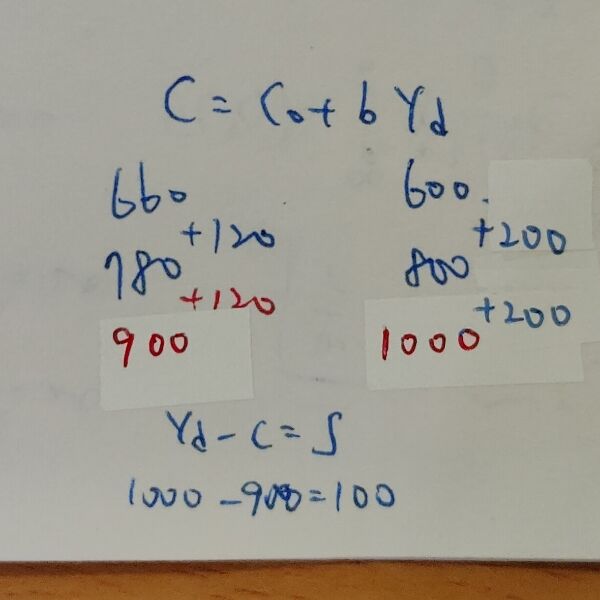 C = C₀ + b Yd
660 600.
+120 +200
780 800
+120 +200
900 1000
Yd - C = S
1000 - 900 = 100